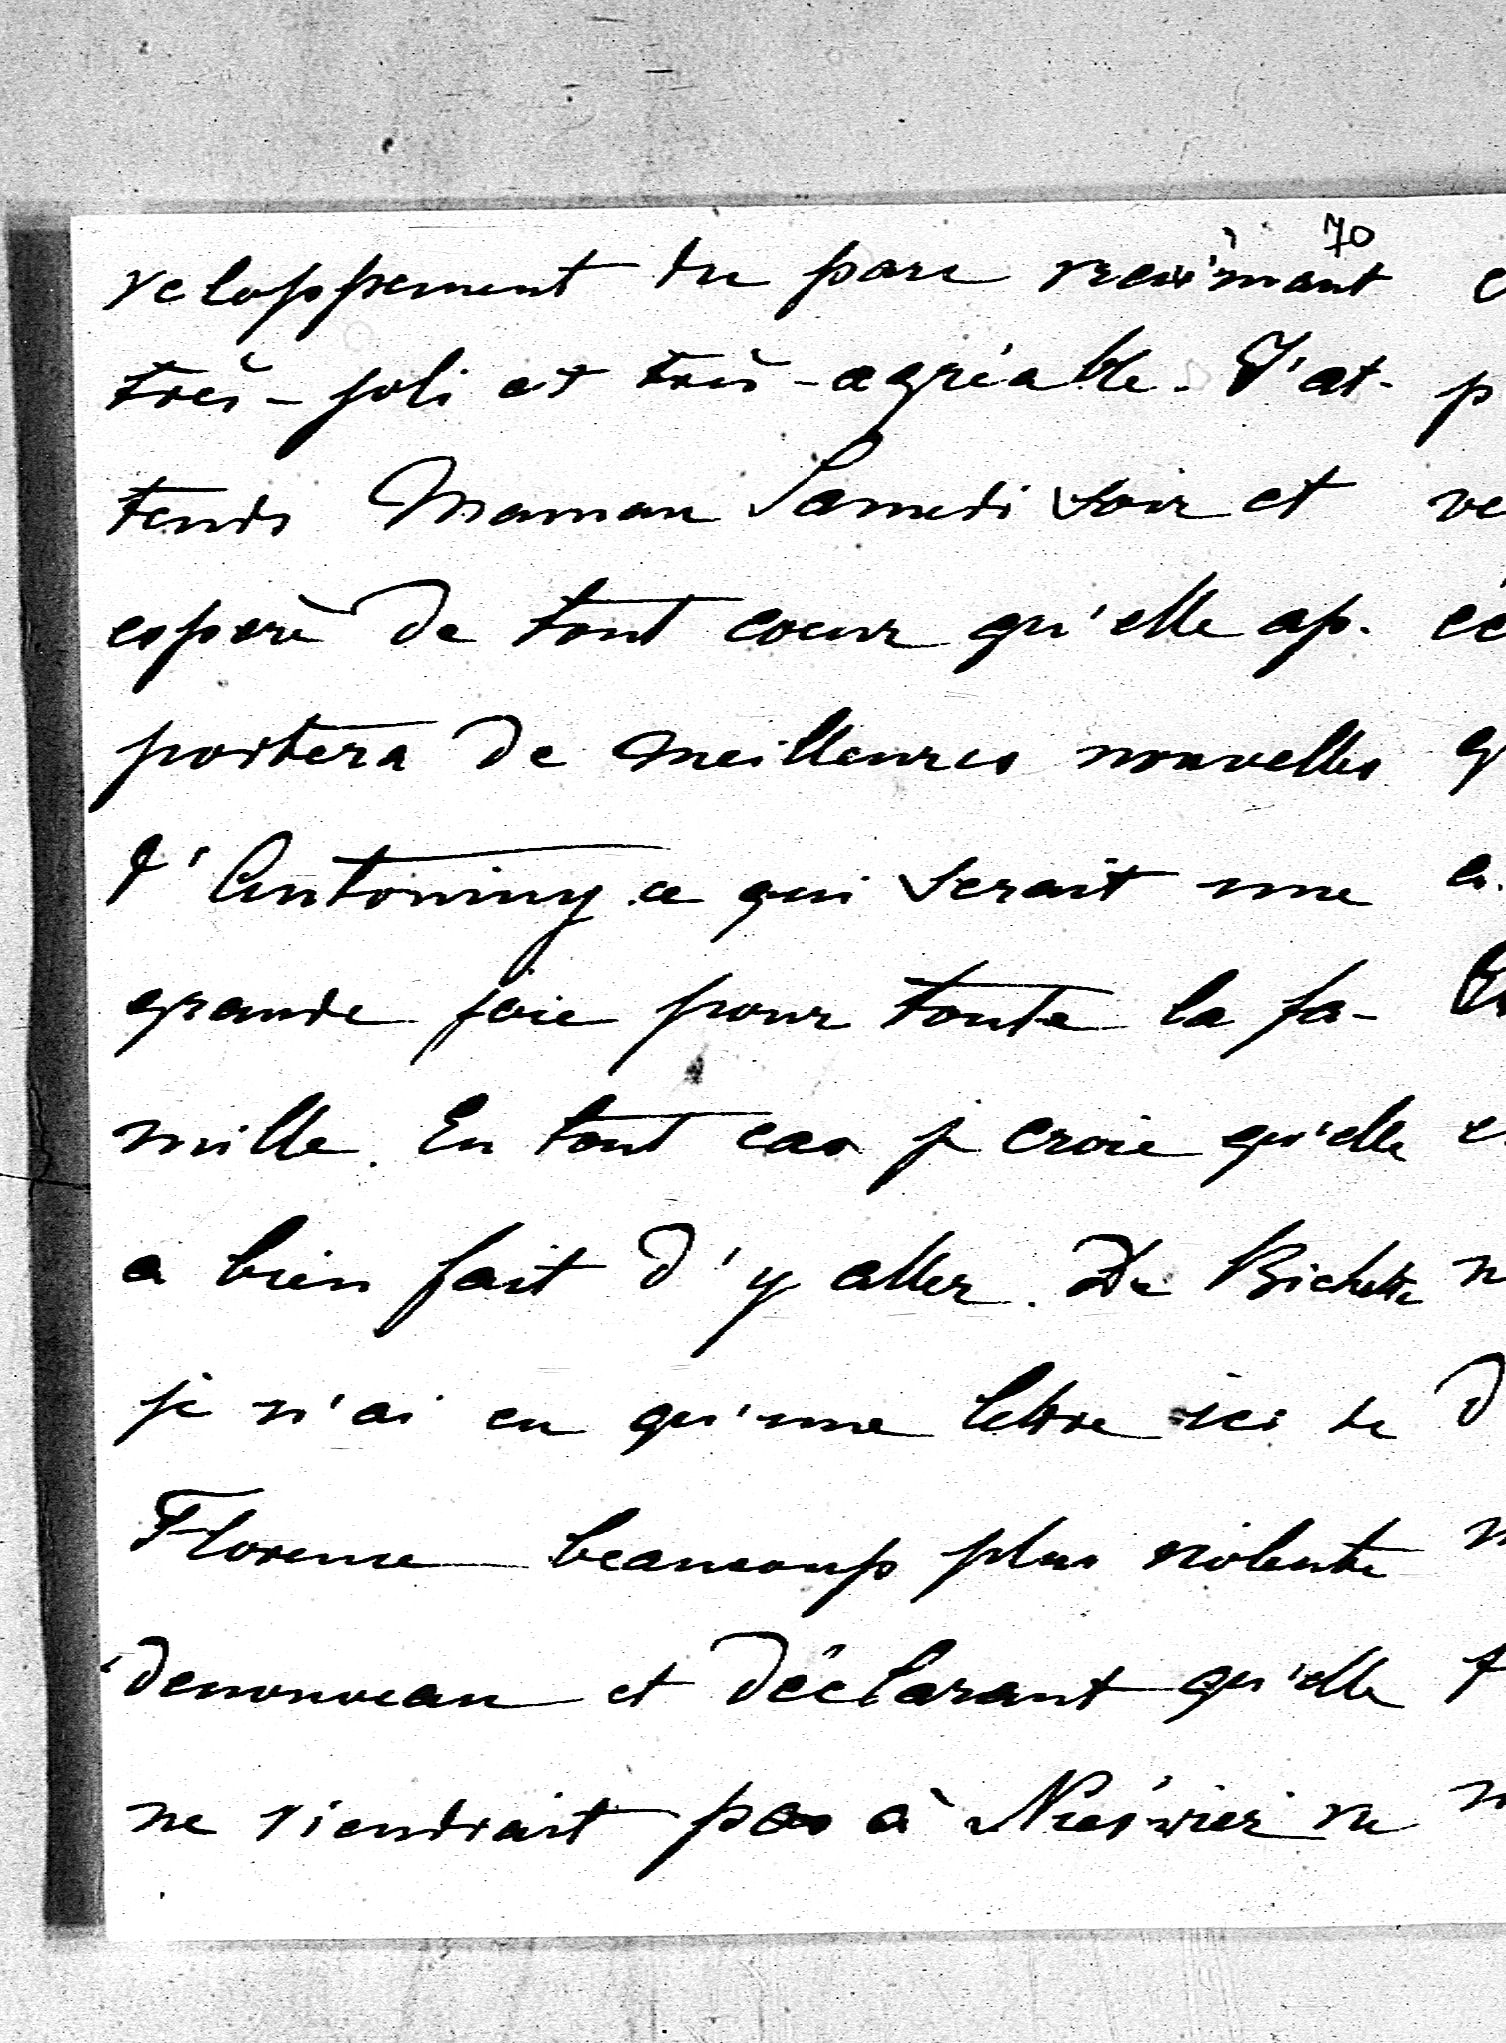 70
veloppement du parc vraiment
très-joli et très-agréable. J'at-
tends Maman Samedi soir et
esperè de tout coeur qu'elle ap-
portera de meilleures nouvelles
d'Antoniny ce qui serait une
grande joie pour toute la fa-
mille. En tout cas je croie qu'elle
a bien fait d'y aller. De Bichette
je n'ai eu qu'une lettre ici de
Florence beaucoup plus violente
denouveau et déclarant qu'elle
ne viendrait pas à Nieśwież ni